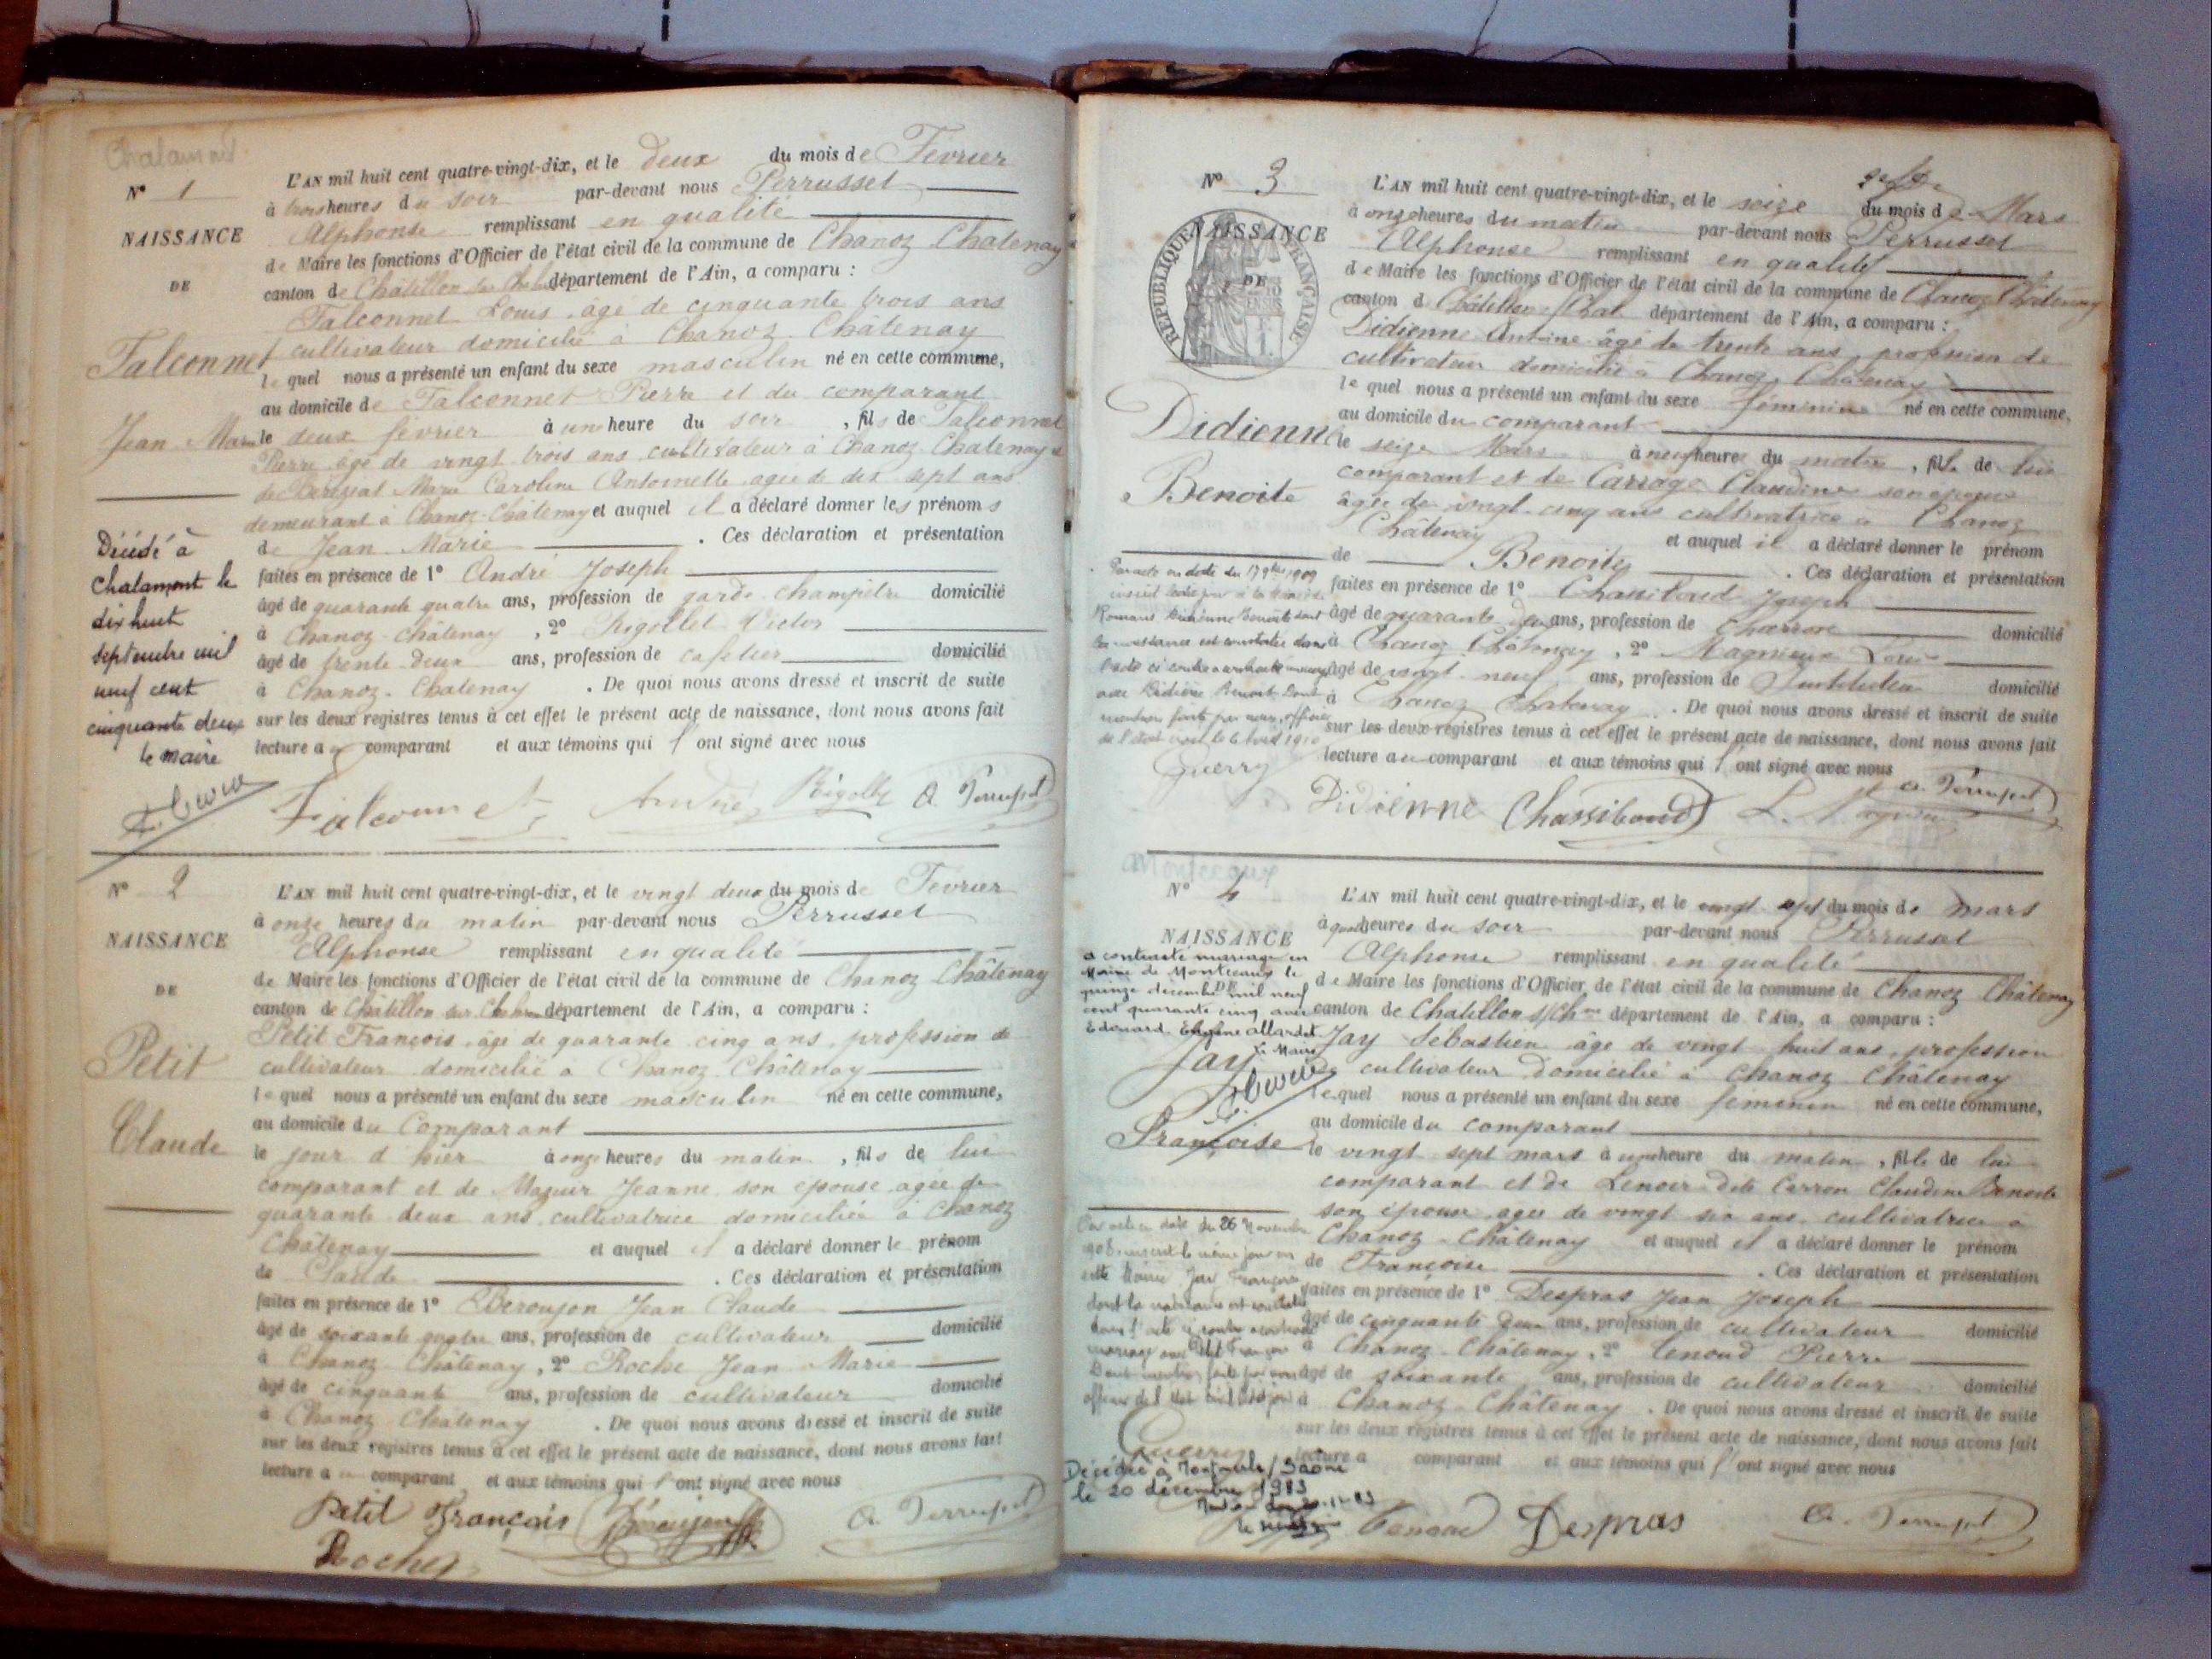 Chalamont
N° 1
NAISSANCE
DE
Falconnet
Jean Marie
Décédé à
Chalamont le
dix huit
septembre mil
neuf cent
cinquante deux
le maire
L'AN mil huit cent quatre-vingt-dix, et le deux du mois de Février
à trois heures du soir par-devant nous Perrusset
Alphonse remplissant en qualité
de Maire les fonctions d'Officier de l'état civil de la commune de Chanoz Chatenay
canton de Châtillon sur département de l'Ain, a comparu :
Falconnet Louis âgé de cinquante trois ans
cultivateur domicilié à Chanoz Châtenay
lequel nous a présenté un enfant du sexe masculin né en cette commune,
au domicile de Falconnet Pierre et du comparant
le deux février à une heure du soir, fils de Falconnet
Pierre âgé de vingt trois ans cultivateur à Chanoz Chatenay et
de Marie Caroline Antoinette agée de dix sept ans
demeurant à Chanoz-Chatenay et auquel il a déclaré donner les prénoms
de Jean Marie . Ces déclaration et présentation
faites en présence de 1° André Joseph
âgé de quarante quatre ans, profession de garde champêtre domicilié
à Chanoz-châtenay, 2° Rigollet Victor
âgé de trente deux ans, profession de cafetier domicilié
à Chanoz-Chatenay . De quoi nous avons dressé et inscrit de suite
sur les deux registres tenus à cet effet le présent acte de naissance, dont nous avons fait
lecture au comparant et aux témoins qui l'ont signé avec nous
Falconnet André Rigollet A. Perrusset
N° 2
NAISSANCE
DE
Petit
Claude
L'AN mil huit cent quatre-vingt-dix, et le vingt deux du mois de Février
à onze heures du matin par-devant nous Perrusset
Alphonse remplissant en qualité
de Maire les fonctions d'Officier de l'état civil de la commune de Chanoz Châtenay
canton de Châtillon sur département de l'Ain, a comparu :
Petit François, âgé de quarante cinq ans, profession de
cultivateur domicilié à Chanoz Châtenay
lequel nous a présenté un enfant du sexe masculin né en cette commune,
au domicile du Comparant
le jour d'hier à onze heures du matin, fils de lui
comparant et de Jeanne son épouse agée de
quarante deux ans cultivatrice domiciliée à Chanoz
Châtenay et auquel il a déclaré donner le prénom
de Claude . Ces déclaration et présentation
faites en présence de 1° Beroujon Jean Claude
âgé de soixante quatre ans, profession de cultivateur domicilié
à Chanoz Châtenay, 2° Roche Jean Marie
âgé de cinquante ans, profession de cultivateur domicilié
à Chanoz Châtenay . De quoi nous avons dressé et inscrit de suite
sur les deux registres tenus à cet effet le présent acte de naissance, dont nous avons fait
lecture au comparant et aux témoins qui l'ont signé avec nous
Petit François Béroujon A. Perrusset
Roche
N° 3
NAISSANCE
DE
RÉPUBLIQUE FRANÇAISE
Didienne
Benoite
Par acte en date du 1909
Guerry
L'AN mil huit cent quatre-vingt-dix, et le seize du mois de Mars
à onze heures du matin par-devant nous Perrusset
Alphonse remplissant en qualité
de Maire les fonctions d'Officier de l'état civil de la commune de Chanoz Châtenay
canton de Châtillon s/Chal département de l'Ain, a comparu :
Didienne Antoine âgé de trente ans, profession de
cultivateur domicilié à Chanoz Châtenay
lequel nous a présenté un enfant du sexe féminine né en cette commune,
au domicile du comparant
le seize Mars à neuf heures du matin, fille de lui
comparant et de Carrage Claudine son épouse
âgée de vingt-cinq ans cultivatrice à Chanoz
Châtenay et auquel il a déclaré donner le prénom
de Benoite . Ces déclaration et présentation
faites en présence de 1° Chassiboud Joseph
âgé de quarante ans, profession de Charron domicilié
à Chanoz Châtenay, 2° Magnieux Louis
âgé de vingt neuf ans, profession de Instituteur domicilié
à Chanoz Chatenay . De quoi nous avons dressé et inscrit de suite
sur les deux registres tenus à cet effet le présent acte de naissance, dont nous avons fait
lecture au comparant et aux témoins qui l'ont signé avec nous
Didienne Chassiboud A. Perrusset
Montceaux
N° 4
NAISSANCE
DE
a contracté mariage en
Mairie de Montceaux le
quinze décembre mil neuf
cent quarante cinq avec
Edouard Eugène Allardet
Le Maire
Jay
Françoise
Par acte en date du 26 Novembre
Guerry
Décédée à Montmerle/Saône
le 20 décembre 1983
L'AN mil huit cent quatre-vingt-dix, et le vingt sept du mois de mars
à quatre heures du soir par-devant nous Perrusset
Alphonse remplissant en qualité
de Maire les fonctions d'Officier de l'état civil de la commune de Chanoz Châtenay
canton de Chatillon s/Ch département de l'Ain, a comparu :
Jay Sébastien âgé de vingt huit ans, profession
de cultivateur domicilié à Chanoz Châtenay
lequel nous a présenté un enfant du sexe féminin né en cette commune,
au domicile du comparant
le vingt sept mars à une heure du matin, fille de lui
comparant et de Lenoir dite Carron Claudine Benoite
son épouse agée de vingt six ans cultivatrice à
Chanoz-Châtenay et auquel il a déclaré donner le prénom
de Françoise . Ces déclaration et présentation
faites en présence de 1° Despras Jean Joseph
âgé de cinquante deux ans, profession de cultivateur domicilié
à Chanoz-Châtenay, 2° Tenoud Pierre
âgé de soixante ans, profession de cultivateur domicilié
à Chanoz-Châtenay . De quoi nous avons dressé et inscrit de suite
sur les deux registres tenus à cet effet le présent acte de naissance, dont nous avons fait
lecture a comparant et aux témoins qui l'ont signé avec nous
Despras A. Perrusset